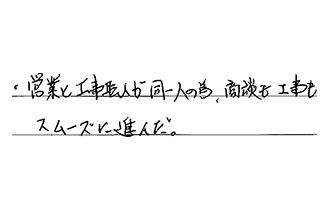 ・営業と工事取人が同一人の為、商談も工事も
スムーズに進んだ。